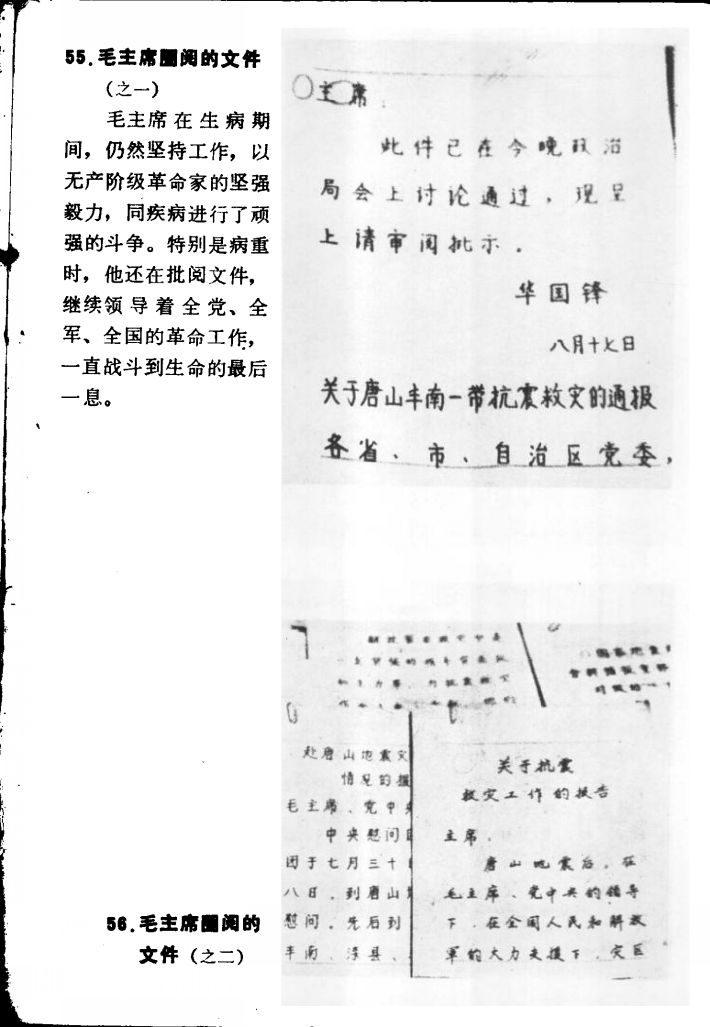 55.毛主席圈阅的文件
(之一)
毛主席在生病期
间，仍然坚持工作，以
无产阶级革命家的坚强
毅力，同疾病进行了顽
强的斗争。特别是病重
时，他还在批阅文件，
继续领导着全党、全
军、全国的革命工作，
一直战斗到生命的最后
一息。
主席：
此件已在今晚政治
局会上讨论通过，现呈
上请审阅批示。
华国锋
八月十七日
关于唐山丰南一带抗震救灾的通报
各省、市、自治区党委，
赴唐山地震灾
情况的
毛主席、党中央
中央慰问
团于七月三十
八日，到唐山
慰问。先后到
丰南、滦县、
关于抗震
救灾工作的报告
主席、
唐山地震后，在
毛主席、党中央的领导
下，在全国人民和解放
军的大力支援下，灾区
56.毛主席圈阅的
文件（之二）